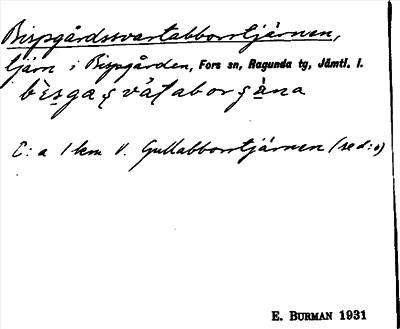 Bispgårdssvartabborrtjärnen,
tjärn i Bispgården, Fors sn, Ragunda tg, Jämtl. l.
C:a 1 km V. Gullabborrtjärnen (se d:o)
E. BURMAN 1931